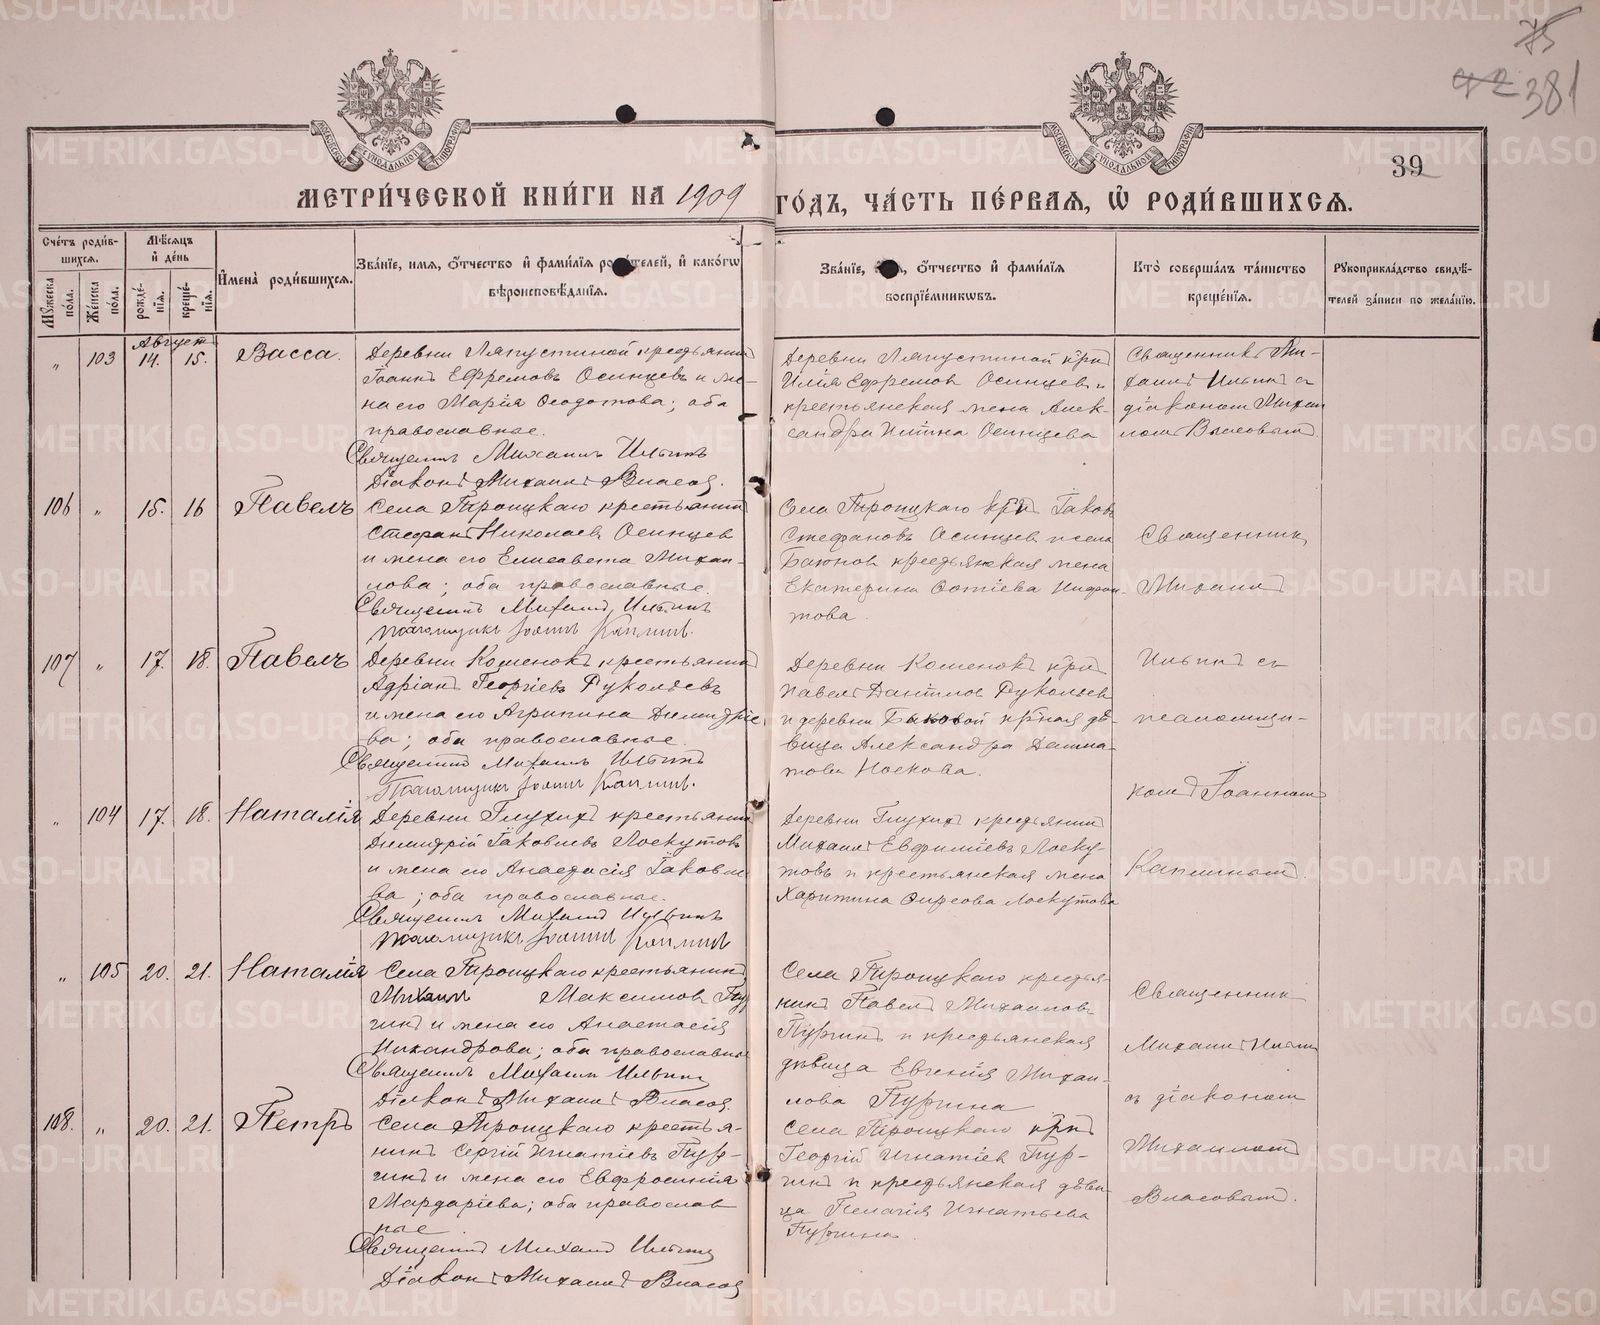 75
42 381
39
МЕТРИ́ЧЕСКОЙ КНИ́ГИ НА 1909 ГО́ДЪ, ЧА́СТЬ ПЕ́РВАЯ, Ѡ РОДИ́ВШИХСЯ.
Сче́тъ роди́вшихся.
Мꙋжеска по́ла.
Же́нска по́ла.
Мѣ́сяцъ и҆ де́нь
рожде́нїя.
креще́нїя.
И҆мена̀ роди́вшихся.
Зва́нїе, имя, ѻ҆́тчество и҆ фами́лїя роди́телей, и҆ како́гѡ
вѣроисповѣ́данїя.
Зва́нїе, ѻ҆́тчество и҆ фами́лїя
воспрїе́мникѡвъ.
Кто̀ соверша́лъ та́инство
креще́нїя.
Рꙋкоприкла́дство свидѣ́-
телей за́писи по жела́нїю.
Августъ
" 103 14. 15. Васса.
Деревни Ляпустиной крестьянинъ
Іоаннъ Ефремовъ Осинцевъ и же-
на его Марія Ѳеодотова; оба
православные.
Священникъ Михаилъ Ильинъ
Діаконъ Михаилъ Власовъ.
Деревни Ляпустиной кр-нъ
Илія Ефремовъ Осинцевъ и
крестьянская жена Алек-
сандра Осинцева
Священникъ Ми-
хаилъ Ильинъ съ
діакономъ Михаи
ломъ Власовымъ.
106 " 15. 16 Павелъ
Села Троицкаго крестьянинъ
Стефанъ Николаевъ Осинцевъ
и жена его Елисавета Михаи-
лова; оба православные.
Священникъ Михаилъ Ильинъ
Псаломщикъ Іоаннъ Каплинъ.
Села Троицкаго кр-нъ Іаковъ
Стефановъ Осинцевъ и села
крестьянская жена
Екатерина Фотіева
това.
Священникъ
Михаилъ
107 " 17. 18. Павелъ
Деревни Кошенокъ крестьянинъ
Адріанъ Георгіевъ Руколѣевъ
и жена его Агрипина Димитріе
ва; оба православные.
Священникъ Михаилъ Ильинъ
Псаломщикъ Іоаннъ Каплинъ.
Деревни Кошенокъ кр-нъ
Павелъ Даніиловъ Руколѣевъ
и деревни кр-ная дѣ-
вица Александра
Носкова.
Ильинъ съ
псаломщи-
комъ Іоанномъ
" 104 17. 18. Наталія
Деревни Глухихъ крестьянинъ
Димитрій Іаковлевъ Лоскутовъ
и жена его Анастасія Іаковле
ва; оба православные.
Священникъ Михаилъ Ильинъ
Псаломщикъ Іоаннъ Каплинъ
Деревни Глухихъ крестьянинъ
Михаилъ Евфиміевъ Лоску-
товъ и крестьянская жена
Харитина Лоскутова
Каплинымъ.
" 105 20. 21. Наталія
Села Троицкаго крестьянинъ
Михаилъ Максимовъ Пур
гинъ и жена его Анастасія
Никандрова; оба православные
Священникъ Михаилъ Ильинъ
Діаконъ Михаилъ Власовъ.
Села Троицкаго крестья-
нинъ Павелъ Михаиловъ
Пургинъ и крестьянская
дѣвица Евгенія Михаи-
лова Пургина
Священникъ
Михаилъ Ильинъ
съ діакономъ
108. " 20. 21. Петръ
Села Троицкаго крестья-
нинъ Сергій Игнатіевъ Пур-
гинъ и жена его Евфросинія
Мардаріева; оба православ
ные
Священникъ Михаилъ Ильинъ
Діаконъ Михаилъ Власовъ
Села Троицкаго кр-нъ
Георгій Игнатіевъ Пур-
гинъ и крестьянская дѣви-
ца Пелагія Игнатьева
Пургина.
Михаиломъ
Власовымъ.
METRIKI.GASO-URAL.RU